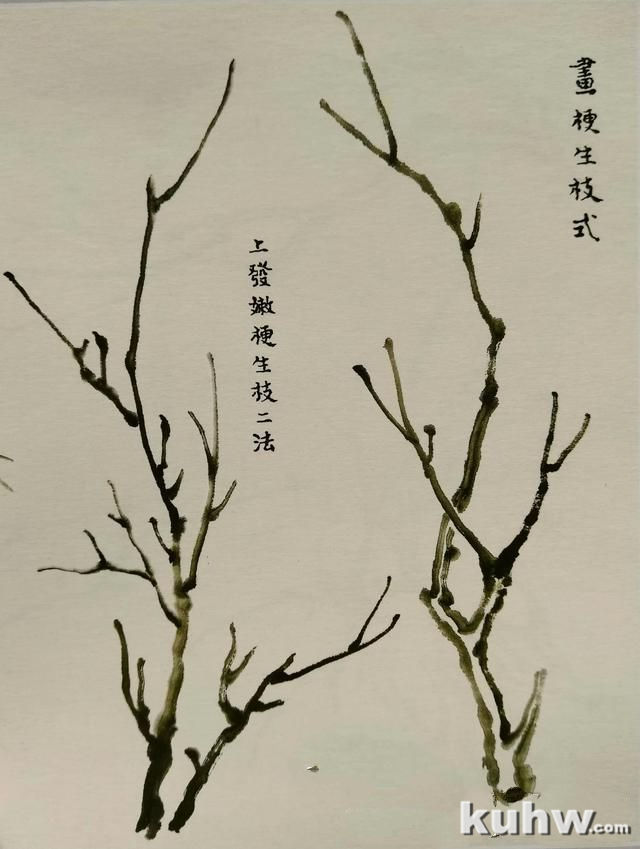 畫梗生枝式
上發嫩梗生枝二法
kuhw.com